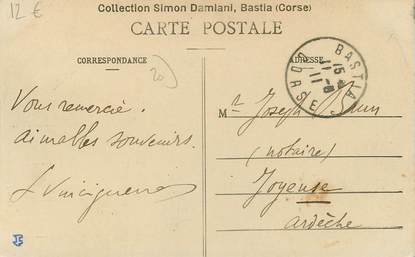 12 €
Collection Simon Damiani, Bastia (Corse)
CARTE POSTALE
CORRESPONDANCE
ADRESSE
20
BASTIA
CORSE
15
11
Vous remercie.
aimables souvenirs.
Vinciguerra
Mr Joseph
(notaire)
Joyeuse
ardèche